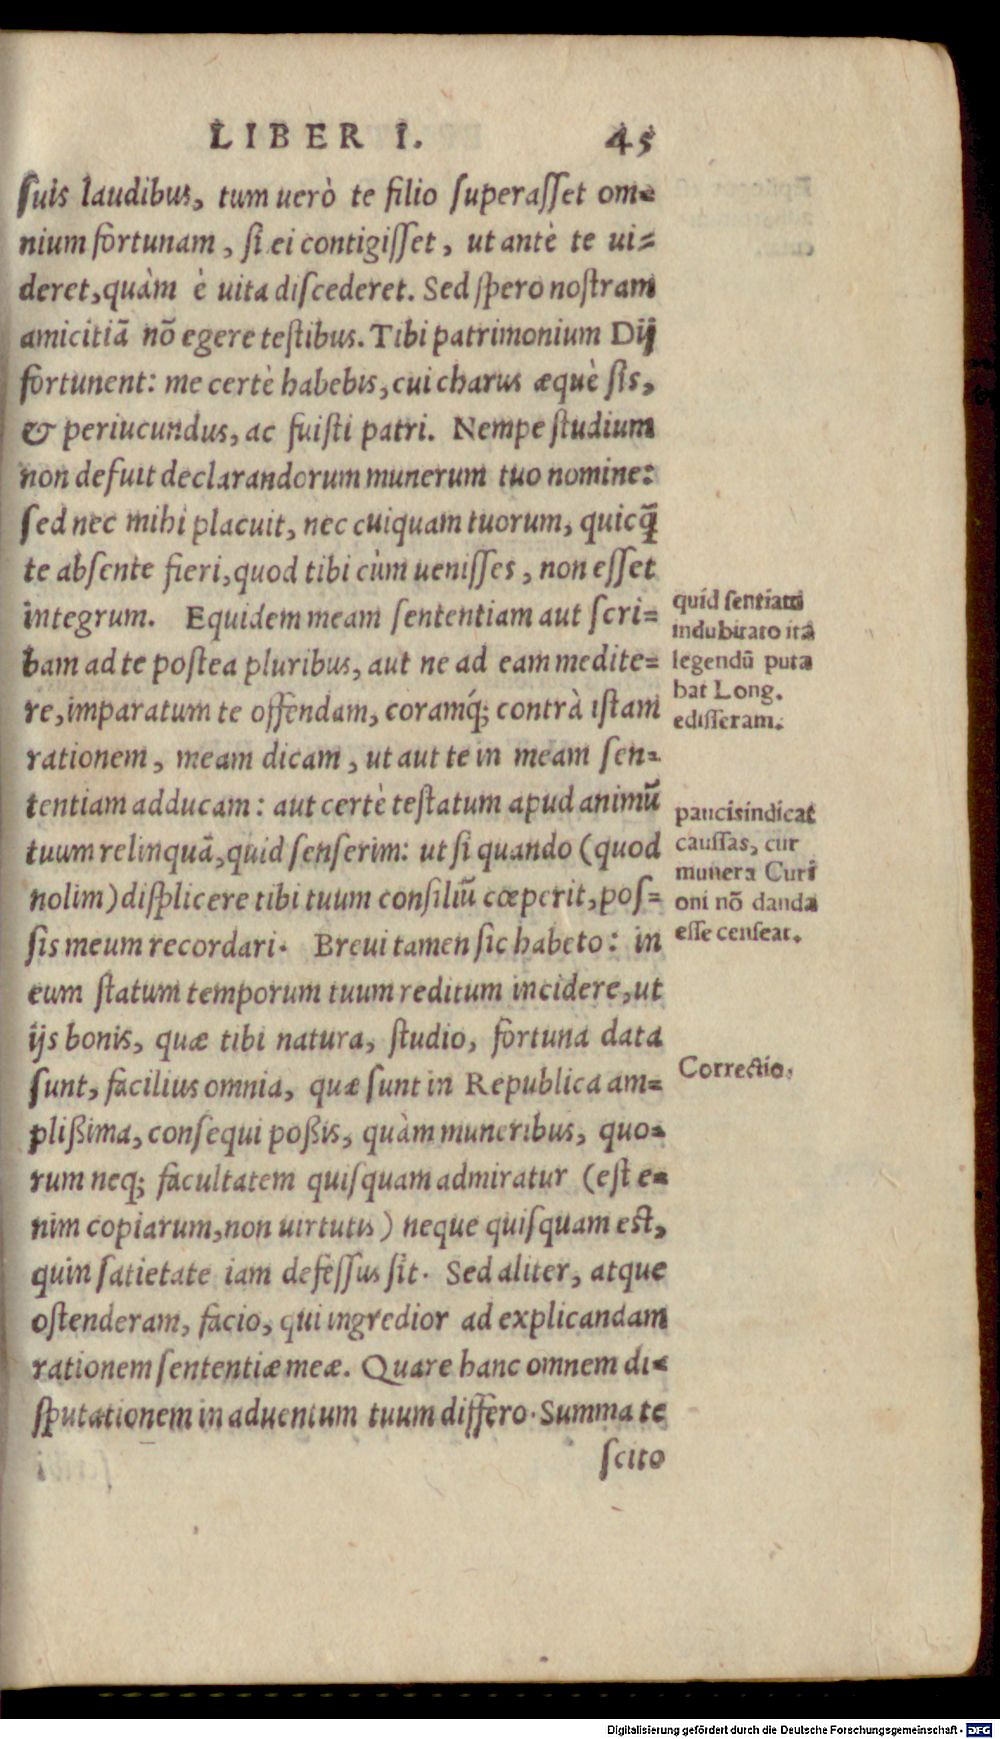 LIBER I. 45
suis laudibus, tum uerò te filio superasset om=
nium fortunam, si ei contigisset, ut antè te ui=
deret, quàm è uita discederet. Sed spero nostram
amicitiā nō egere testibus. Tibi patrimonium Dij
fortunent: me certè habebis, cui charus æquè sis,
& periucundus, ac fuisti patri. Nempe studium
non defuit declarandorum munerum tuo nomine:
sed nec mihi placuit, nec cuiquam tuorum, quicq̃
te absente fieri, quod tibi cùm uenisses, non esset
integrum. Equidem meam sententiam aut scri=
bam ad te postea pluribus, aut ne ad eam medite=
re, imparatum te offendam, coramq́; contrà istam
rationem, meam dicam, ut aut te in meam sen=
tentiam adducam: aut certè testatum apud animū
tuum relinquā, quid senserim: ut si quando (quod
nolim) displicere tibi tuum consiliū cœperit, pos=
sis meum recordari. Breui tamen sic habeto: in
eum statum temporum tuum reditum incidere, ut
ijs bonis, quæ tibi natura, studio, fortuna data
sunt, facilius omnia, quæ sunt in Republica am=
plißima, consequi poßis, quàm muneribus, quo=
rum neq; facultatem quisquam admiratur (est e=
nim copiarum, non uirtutis) neque quisquam est,
quin satietate iam defessus sit. Sed aliter, atque
ostenderam, facio, qui ingredior ad explicandam
rationem sententiæ meæ. Quare hanc omnem di=
sputationem in aduentum tuum differo. Summa te
scito
quid sentiam
indubitato ita
legendū puta
bat Long.
edisseram.
paucis indicat
caussas, cur
munera Curi
oni nō danda
esse censeat.
Correctio.
Digitalisierung gefördert durch die Deutsche Forschungsgemeinschaft - DFG